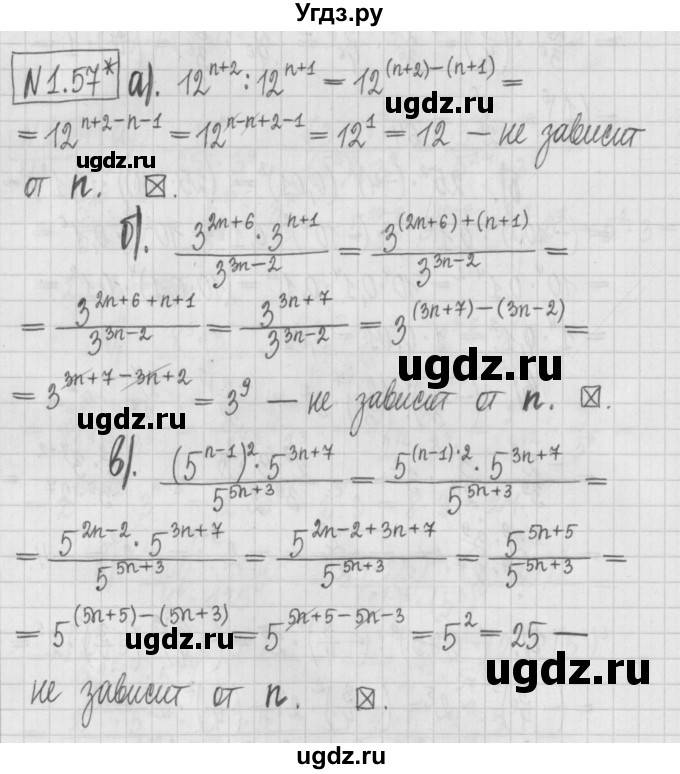 Угдз.ру
N 1.57* а). 12^{n+2} : 12^{n+1} = 12^{(n+2)-(n+1)} =
©gdz.ru
= 12^{n+2-n-1} = 12^{n-n+2-1} = 12^1 = 12 — не зависит
ugdz.ru
от n. ☒.
б). \frac{3^{2n+6} · 3^{n+1}}{3^{3n-2}} = \frac{3^{(2n+6)+(n+1)}}{3^{3n-2}} =
= \frac{3^{2n+6+n+1}}{3^{3n-2}} = \frac{3^{3n+7}}{3^{3n-2}} = 3^{(3n+7)-(3n-2)} =
ugdz.ru
= 3^{3n+7-3n+2} = 3^9 — не зависит от n. ☒.
ugdz.ru
в). \frac{(5^{n-1})^2 · 5^{3n+7}}{5^{5n+3}} = \frac{5^{(n-1)·2} · 5^{3n+7}}{5^{5n+3}} =
= \frac{5^{2n-2} · 5^{3n+7}}{5^{5n+3}} = \frac{5^{2n-2+3n+7}}{5^{5n+3}} = \frac{5^{5n+5}}{5^{5n+3}} =
= 5^{(5n+5)-(5n+3)} = 5^{5n+5-5n-3} = 5^2 = 25 —
ugdz.ru
ugdz.ru
не зависит от n. ☒.
ugdz.ru